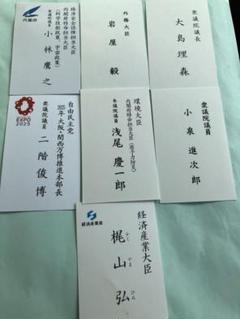 衆議院議長
大島理森
外務大臣
岩屋 毅
経済安全保障担当大臣
内閣府特命担当大臣
(科学技術政策、宇宙政策)
衆議院議員
小林鷹之
内閣府
衆議院議員
小泉進次郎
環境大臣
内閣府特命担当大臣(原子力防災)
参議院議員
浅尾慶一郎
自由民主党
2025年大阪・関西万博推進本部長
衆議院議員
二階俊博
EXPO
2025
経済産業大臣
梶山弘
かじ
やま
ひろ
経済産業省